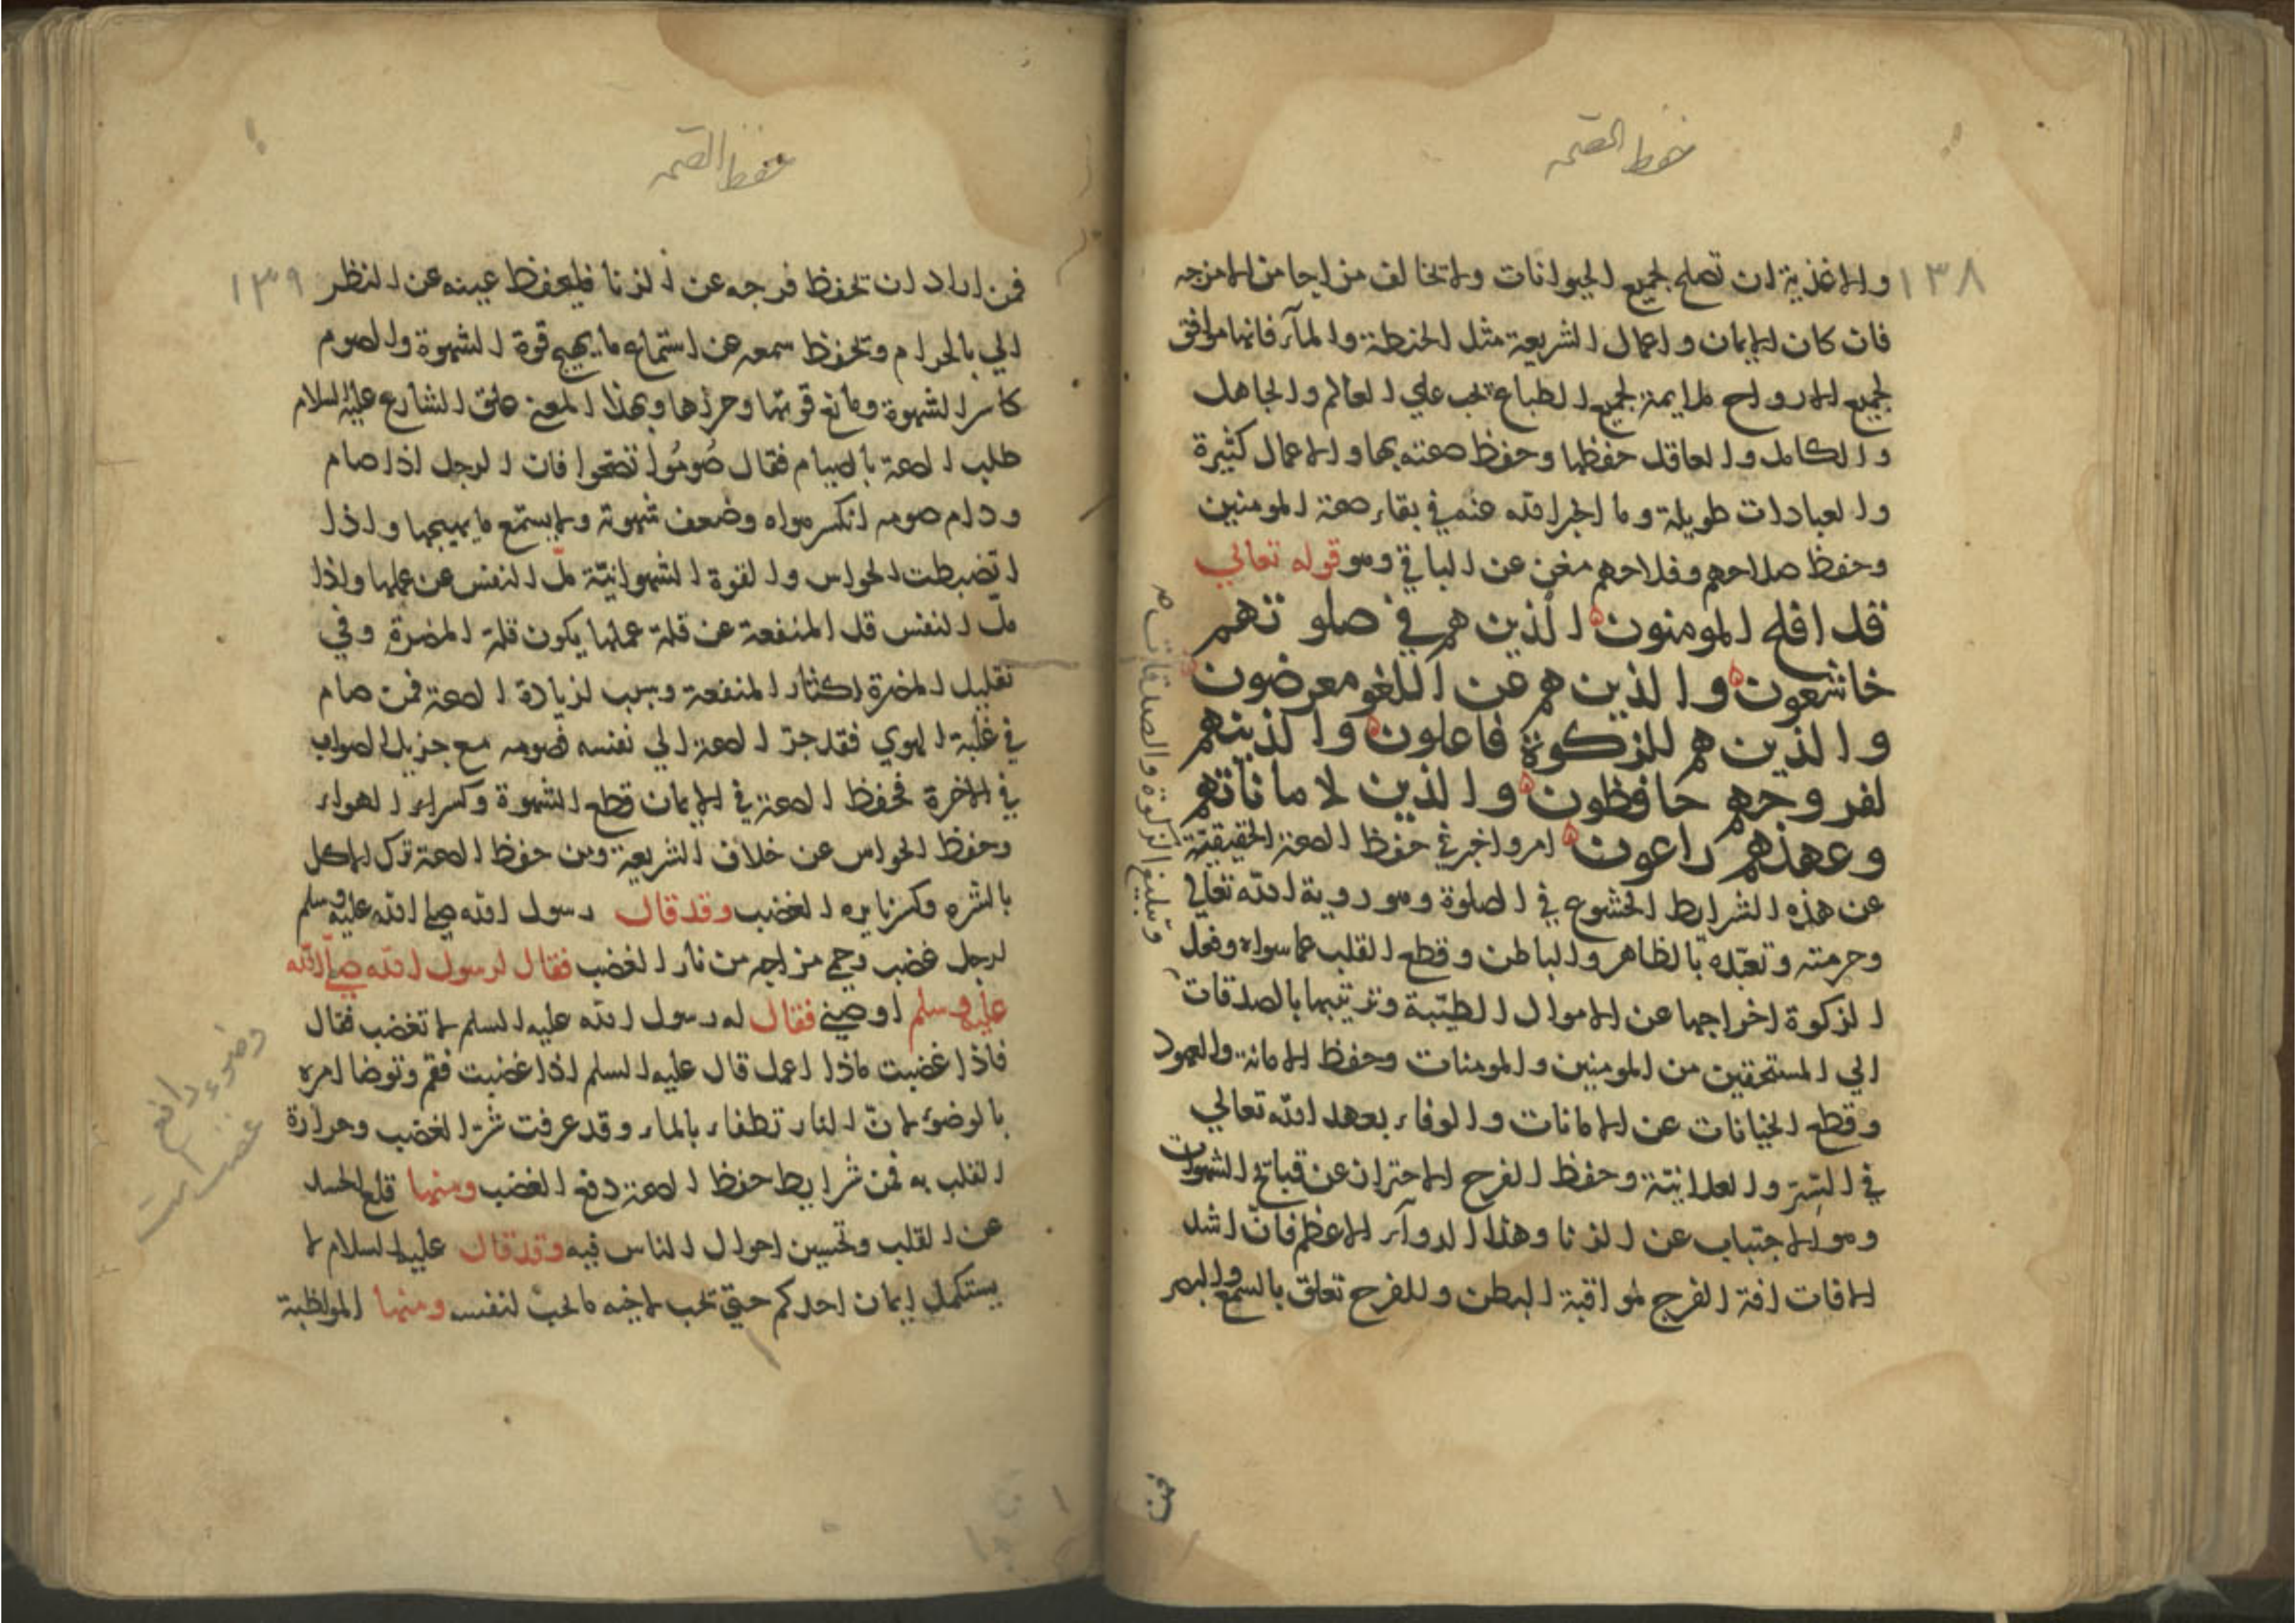 حفظ الصحة
١٣٨
والاغذية ان تصلح لجميع الحيوانات ولا تخالف مزاجا من الامزجه
فان كان الايمان واعمال الشريعة مثل الحنطة والمآء فانها موافق
لجميع الارواح ملايمة لجميع الطباع تجب علي العالم والجاهل
والكامل والعاقل حفظها وحفظ صحته بها والاعمال كثيرة
والعبادات طويلة وما اخبر الله عنهم في بقاء صحة المومنين
وحفظ صلاحهم وفلاحهم مغن عن الباقي وهو قوله تعالي
قد افلح المومنون الذين هم في صلوتهم
خاشعون والذين هم عن اللغو معرضون
والذين هم للزكوة فاعلون والذينهم
لفروجهم حافظون والذين لاماناتهم
وعهدهم راعون امر واخبر في حفظ الصحة الحقيقيّة
عن هذه الشرايط الخشوع في الصلوة وهو روية الله تعالي
وحرمته وتعبّده بالظاهر والباطن وقطع القلب عما سواه وفعل
الزكوة اخراجها عن الاموال الطيّبة وتربيتها بالصدقات
الي المستحقين من المومنين والمومنات وحفظ الامانة والعهود
وقطع الخيانات عن الامانات والوفاء بعهد الله تعالي
في السّر والعلانيّة وحفظ الفرج الاحتراز عن قبائح الشهوات
وهو الاجتباب عن الزنا وهذا الدوآء الاعظم فانّ اشد
الافات افة الفرج لمواقبة البطن وللفرج تعلق بالسمع والبصر
وتبليغ الزكوة والصدقات
فمن
حفظ الصحة
١٣٩
فمن اراد ان تحفظ فرجه عن الزنا فليحفظ عينه عن النظر
الي بالحرام وتحفظ سمعه عن استماع ما يهيج قوة الشهوة والصوم
كاسر الشهوة ومانع قوتها وحرزها وبهذا المعني علق الشارع عليه السلام
طلب الصحة بالصيام فقال صُومُوا تصحوا فان الرجل اذا صام
ودام صومه انكسر هواه وضعف شهوته ولا يستمع ما يهيجها واذا
انضبطت الحواس والقوة الشهوانيّة ملّ النفس عن عملها واذا
ملّ النفس قل المنفعة عن قلة عملها يكون قلة المضرة وفي
تقليل المضرة اكثار المنفعة وسبب لزيادة الصحة فمن صام
في غلبة الهوي فقد جرّ الصحة الي نفسه فصومه مع جزيل الصواب
في الاخرة فحفظ الصحة في الايمان قطع الشهوة وكسراء الهواء
وحفظ الحواس عن خلاف الشريعة ومن حفظ الصحة ترك الاكل
بالشره وكسر نايره الغضب وقد قال رسول الله صلي الله عليه وسلم
لرجل غضب وحمي مزاجه من نار الغضب فقال لرسول الله صلّي الله
عليه وسلم اوصني فقال له رسول الله عليه السلم لا تغضب فقال
فاذا غضبت ماذا اعمل قال عليه السلم اذا غضبت فقم وتوضا امره
بالوضؤ لانّ النار تطفاء بالماء وقد عرفت شرّ الغضب وحرارة
القلب به فمن شرايط حفظ الصحة دفع الغضب ومنها قلع الحسد
عن القلب وتحسين احوال الناس فيه وقد قال عليه السلام لا
يستكمل ايمان احدكم حتي تحب لاخيه ما تحبّ لنفسه ومنها المواظبة
وضوء دافع
غضب است